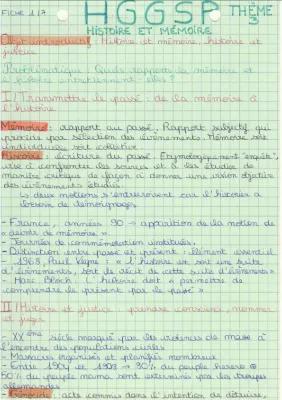 FICHE 1/7
HGGSP THÈME 3
HISTOIRE ET MÉMOIRE
Objet introductif : Histoire et mémoire, histoire et
justice
Problématique : Quels rapports la mémoire et
l'histoire entretiennent-elles ?
I | Transmettre le passé : de la mémoire à
l'histoire
Mémoire : rapport au passé. Rapport subjectif qui
procède par sélection des évènements. Mémoire soit
individuelle soit collective
Histoire : écriture du passé. Etymologiquement "enquête",
vise à confronter les sources et à les étudier de
manière critique de façon à donner une vision objective
des évènements étudiés.
↳ deux notions s'entrecroisent car l'historien a
besoin de témoignages
- France, années 90 → apparition de la notion de
« devoir de mémoire ».
- Journées de commémoration instituées.
- Distinction entre passé et présent : élément essentiel
- 1968, Paul Veyne : « l'histoire est une suite
d'évènements, soit le récit de cette suite d'évènements »
- Marc Bloch : l'histoire doit « permettre de
comprendre le présent par le passé »
II | Histoire et justice : prendre conscience, nommer
et juger
- XXème siècle marqué par les violences de masse à
l'encontre des populations civiles
- Massacres organisés et planifiés nombreux
- Entre 1904 et 1908 → 80% du peuple herero et
50% du peuple nama sont exterminés par les troupes
allemandes
- Génocide : acte commis dans l'intention de détruire,